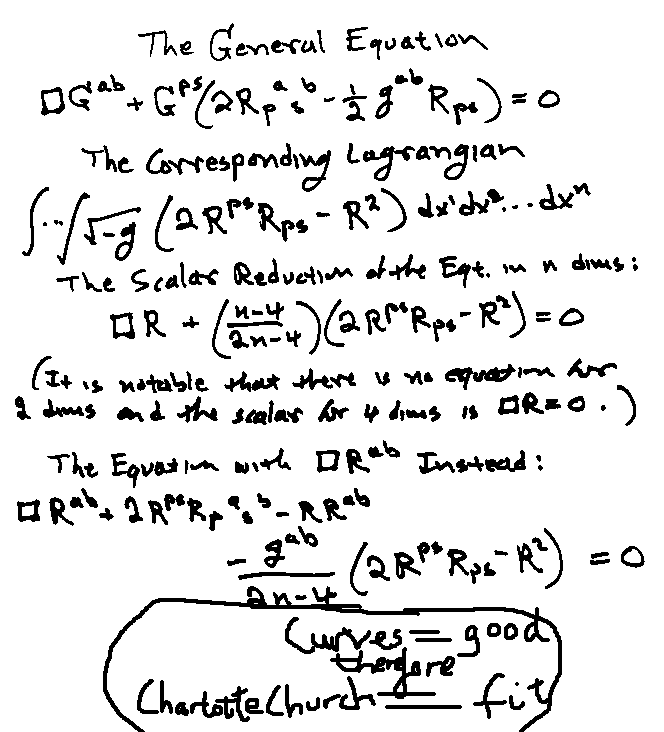 The General Equation
□G^ab + G^ps(2R_p^a_s^b - ½ g^ab R_ps) = 0
The Corresponding Lagrangian
∫...∫√-g (2R^ps R_ps - R²) dx¹dx²...dxⁿ
The Scalar Reduction of the Eqt. in n dims:
□R + (n-4/2n-4)(2R^ps R_ps - R²) = 0
(It is notable that there is no equation for
2 dims and the scalar for 4 dims is □R=0.)
The Equation with □R^ab Instead:
□R^ab + 2R^ps R_p^a_s^b - RR^ab
- g^ab/2n-4 (2R^ps R_ps - R²) = 0
Curves = good
therefore
Charlotte Church = fit